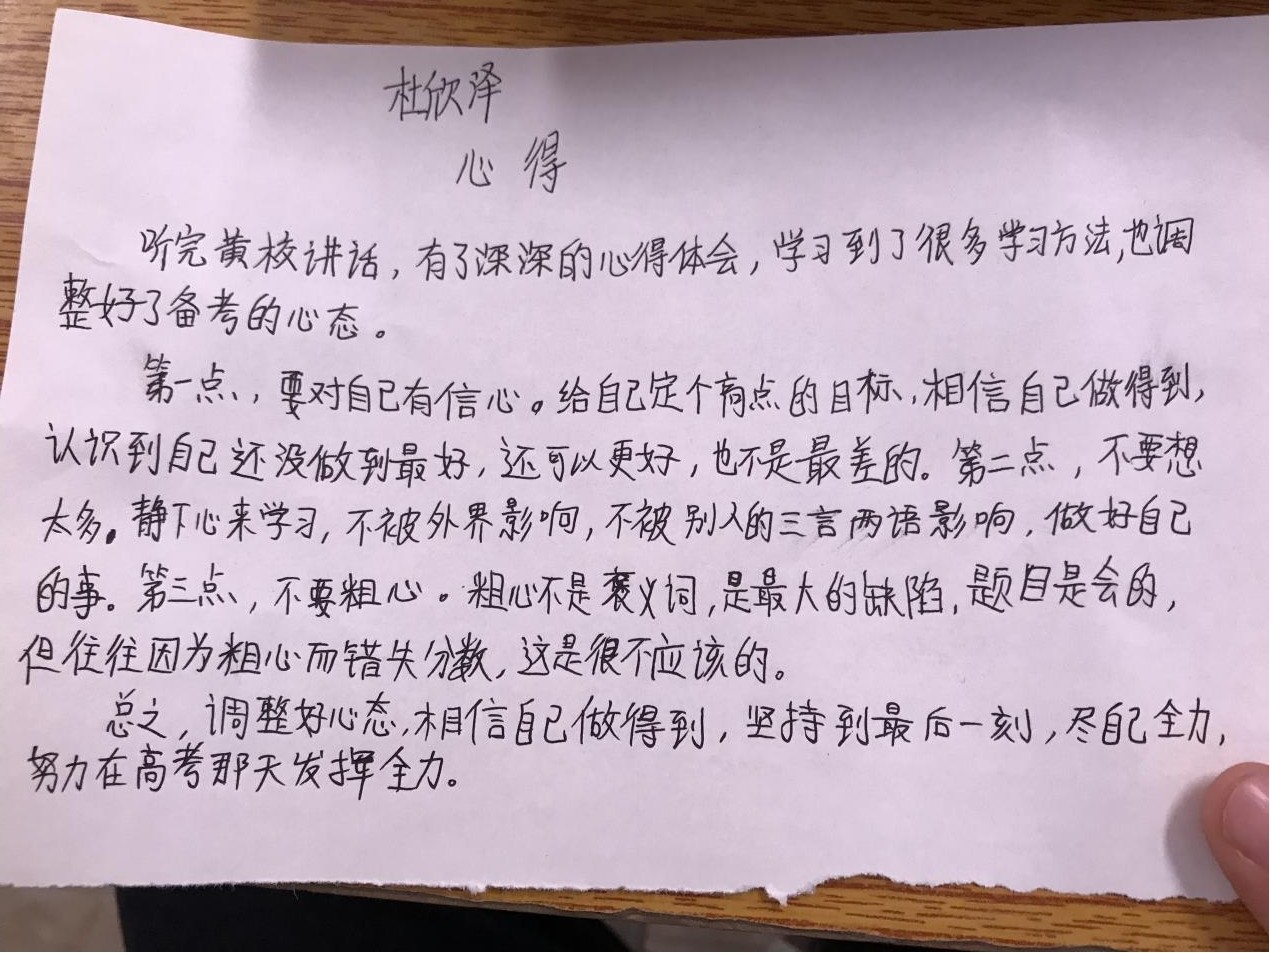 杜欣泽
心得
听完黄校讲话,有了深深的心得体会,学习到了很多学习方法,也调
整好了备考的心态。
第一点,要对自己有信心。给自己定个高点的目标,相信自己做得到,
认识到自己还没做到最好,还可以更好,也不是最差的。第二点,不要想
太多。静下心来学习,不被外界影响,不被别人的三言两语影响,做好自己
的事。第三点,不要粗心。粗心不是褒义词,是最大的缺陷,题目是会的,
但往往因为粗心而错失分数,这是很不应该的。
总之,调整好心态,相信自己做得到,坚持到最后一刻,尽自己全力,
努力在高考那天发挥全力。